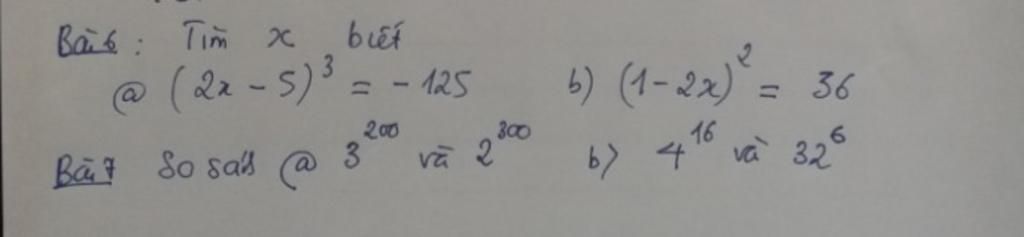 Bài 6 : Tìm x biết
ⓐ (2x - 5)³ = - 125 b) (1 - 2x)² = 36
Bài 7 So sáh ⓐ 3²⁰⁰ và 2³⁰⁰ b) 4¹⁶ và 32⁶